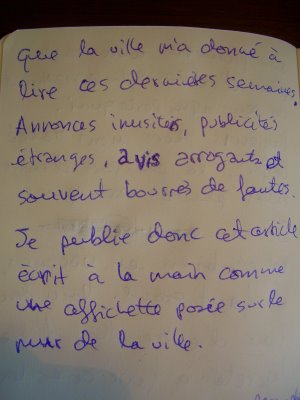 que la ville m'a donné à
lire ces dernières semaines.
Annonces inusités, publicités
étranges, avis arrogants et
souvent bourrés de fautes.
Je publie donc cet article
écrit à la main comme
une affichette posée sur le
mur de la ville.